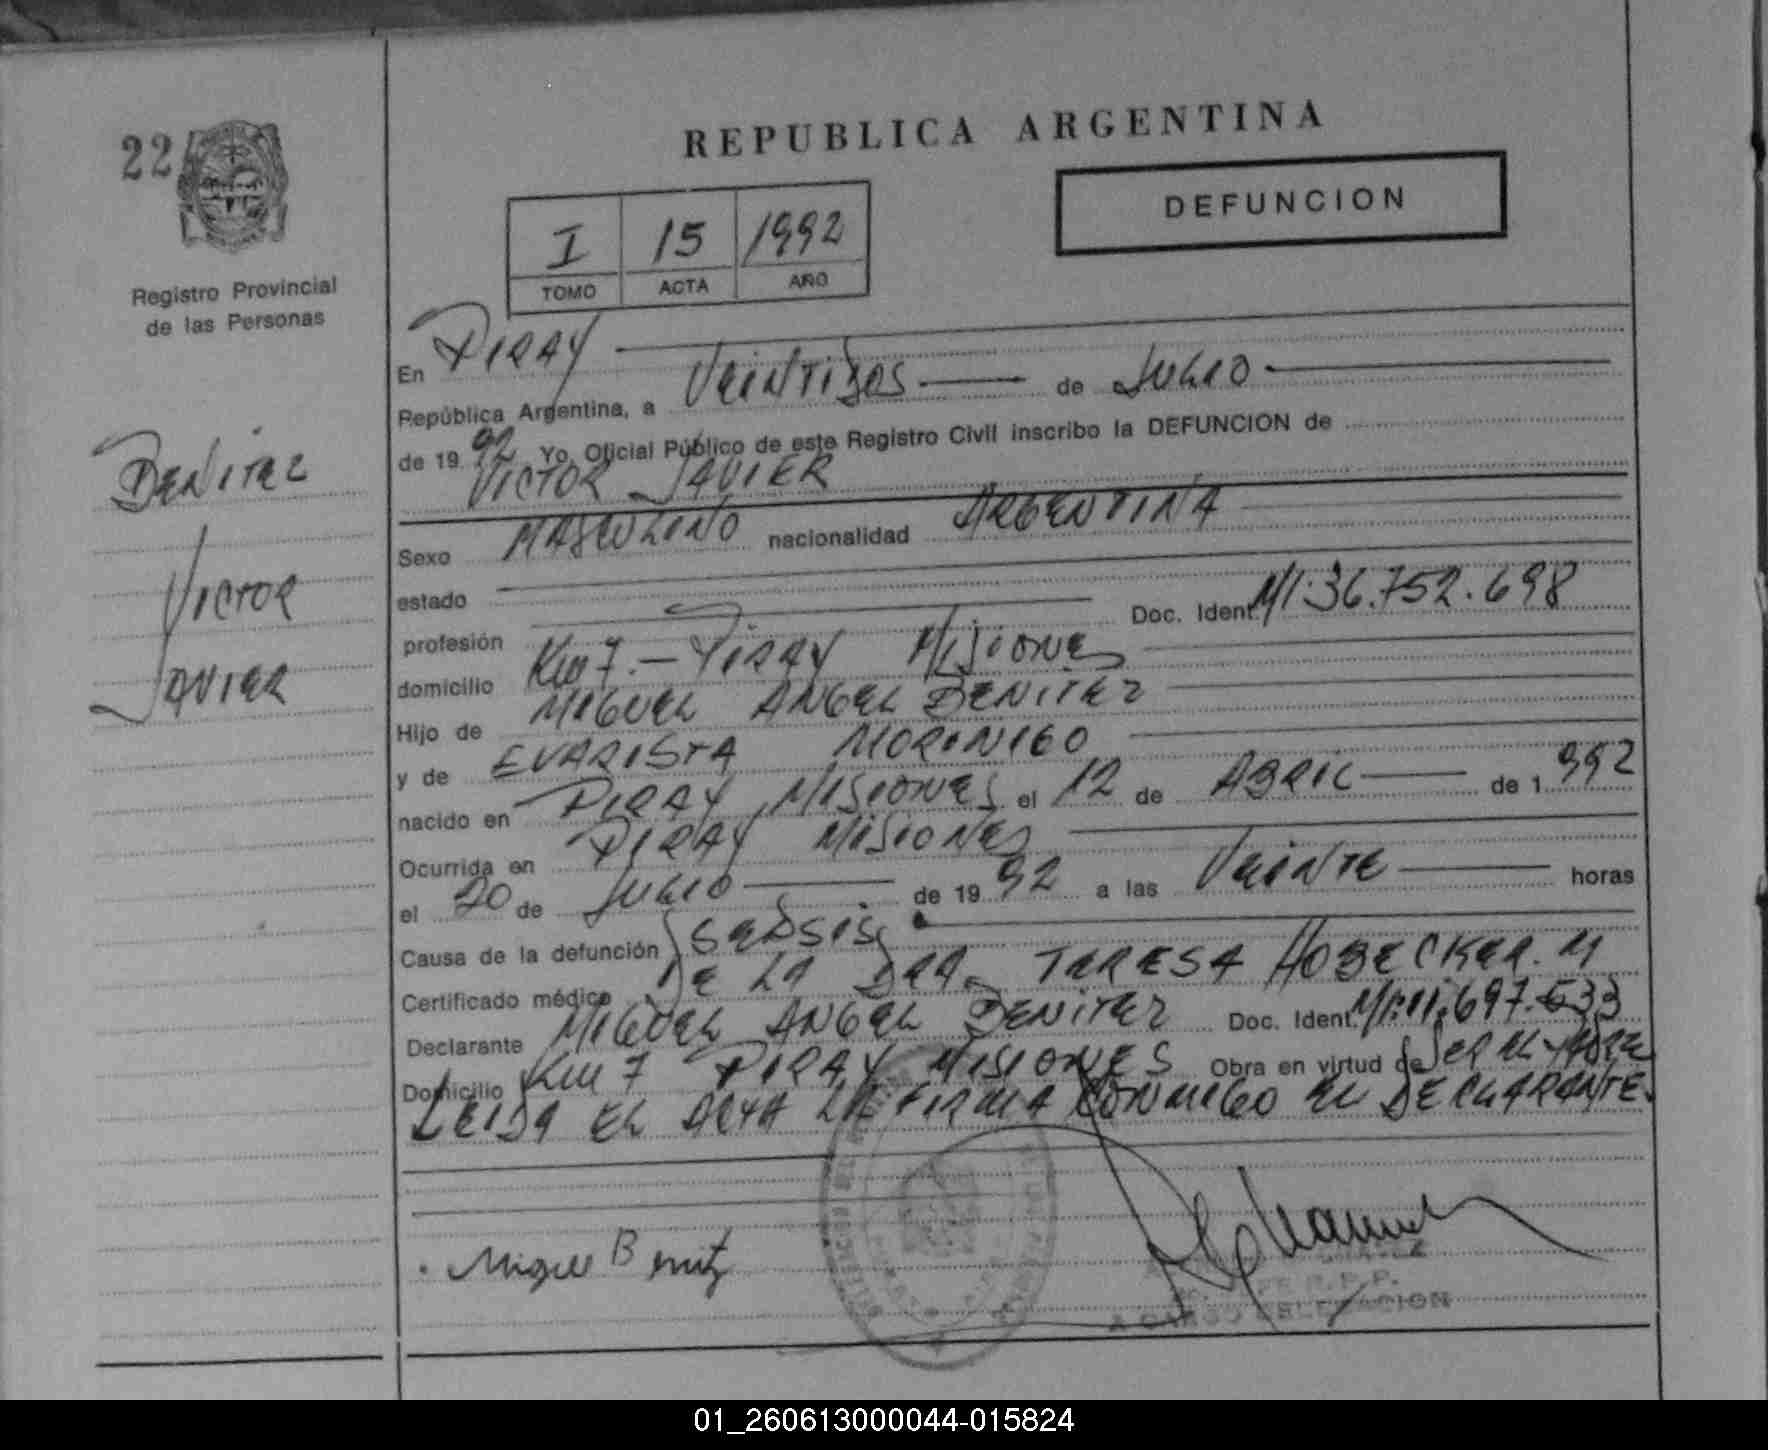 22
REPUBLICA ARGENTINA
DEFUNCION
I 15 1992
TOMO ACTA AÑO
Registro Provincial
de las Personas
BENITEZ
VICTOR
JAVIER
En PIRAY
República Argentina, a VEINTIDOS de JULIO
de 1992 Yo, Oficial Público de este Registro Civil inscribo la DEFUNCION de
VICTOR JAVIER
Sexo MASCULINO nacionalidad ARGENTINA
estado
profesión Doc. Ident. MI. 36.752.698
domicilio Km 7.- PIRAY MISIONES
Hijo de MIGUEL ANGEL BENITEZ
y de EVARISTA MORINIGO
nacido en PIRAY MISIONES el 12 de ABRIL de 1992
Ocurrida en PIRAY MISIONES
el 20 de JULIO de 1992 a las VEINTE horas
Causa de la defunción SEPSIS
Certificado médico DE LA DRA. TERESA HOBECKER. M
Declarante MIGUEL ANGEL BENITEZ Doc. Ident. MI. 11.697.533
Domicilio Km 7 PIRAY MISIONES Obra en virtud de SER EL PADRE
LEIDA EL ACTA LA FIRMA CONMIGO EL DECLARANTE.
Miguel Benitez
R.P.P.
A CARGO DELEGACION
01_260613000044-015824